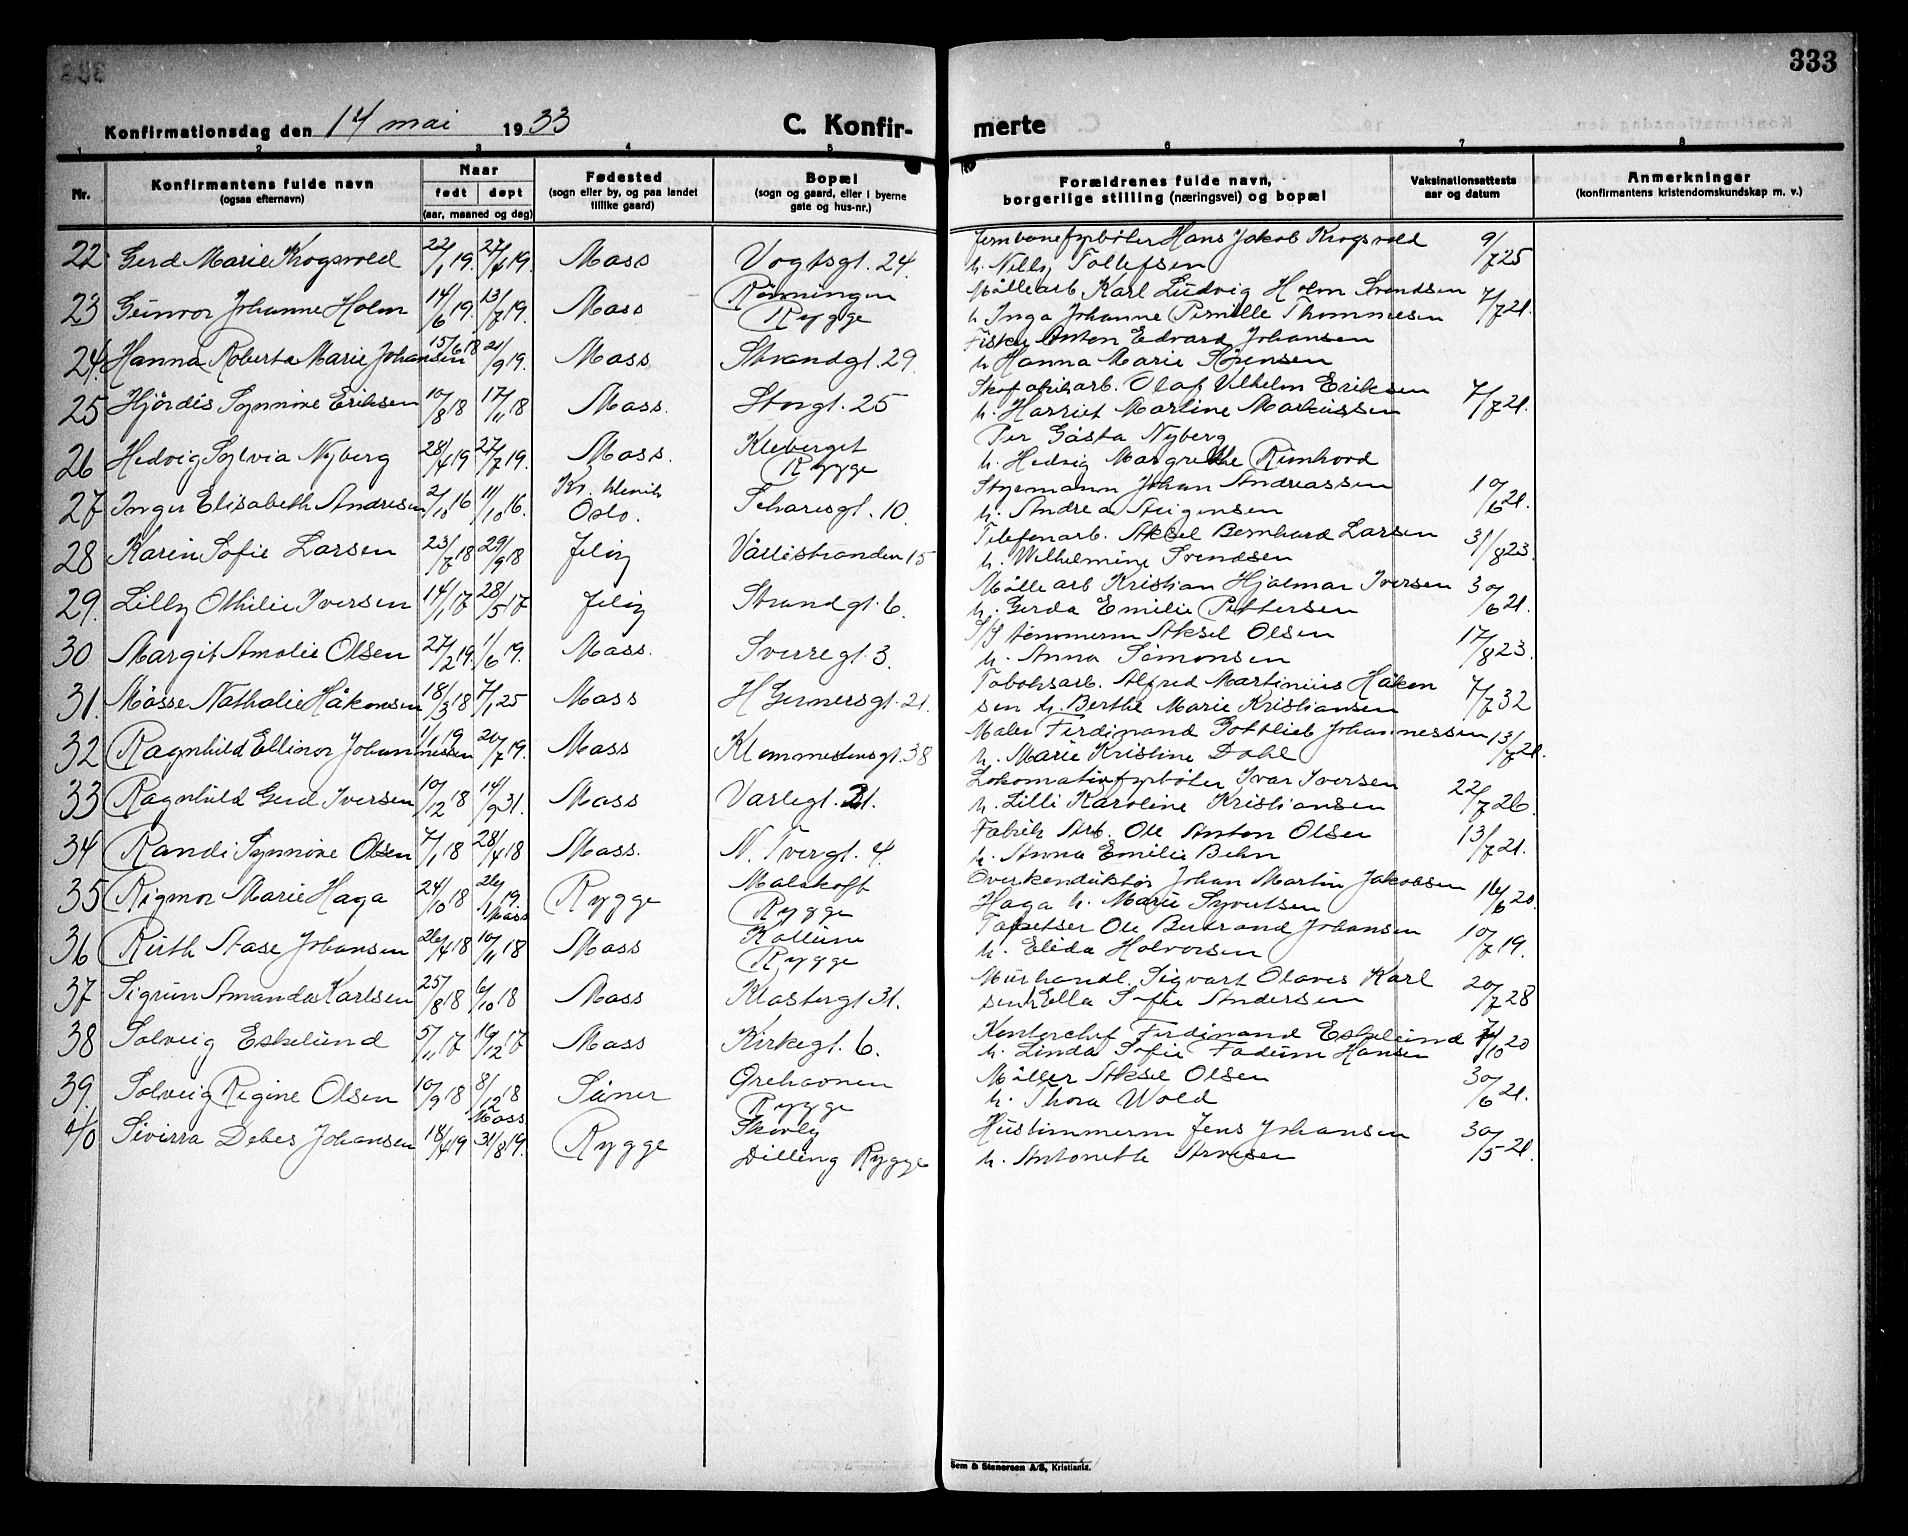 333
Konfirmationsdag den 14 mai 1933
C. Konfir-
merte
1 2 3 4 5 6 7 8
Nr.
Konfirmantens fulde navn
(ogsaa efternavn)
Naar
født døpt
(aar, maaned og dag)
Fødested
(sogn eller by, og paa landet
tillike gaard)
Bopæl
(sogn og gaard, eller i byerne
gate og hus-nr.)
Forældrenes fulde navn,
borgerlige stilling (næringsvei) og bopæl
Vaksinationsattests
aar og datum
Anmerkninger
(konfirmantens kristendomskundskap m. v.)
22 Gerd Marie Krogsvold 22/1 19. 27/4 19. Moss Vogtsgt. 24. Jernbanefyrbøter Hans Jakob Krogsvold 9/7 25
h. Nelly Tollefsen
23 Gunvor Johanne Holm 14/6 19. 13/7 19. Moss Rønningen Møllearb Karl Ludvig Holm Svendsen 7/7 21.
Rygge h. Inga Johanne Pernille Thommesen
24. Hanna Roberta Marie Johansen 15/6 18 21/9 19. Moss Strandgt. 29. Fisker Anton Edvard Johansen
h. Hanna Marie Sørensen
25 Hjördis Synnøve Eriksen 10/8 18 17/11 18 Moss. Storgt. 25 Skofabrikarb. Olaf Vilhelm Eriksen 7/7 21.
h. Harriet Martine Markussen
26 Hedvig Sylvia Nyberg 28/4 19 27/7 19. Moss. Kleberget Per Gösta Nyberg
Rygge h. Hedvig Margrethe
27 Inger Elisabeth Andresen 2/10 16 11/10 16. Kr. Oslo. 10. Styrmann Johan Andreassen 10/6 21.
h. Andrea
28 Karin Sofie Larsen 23/7 18 29/9 18 Jeløy Vårlistranden 15 Telefonarb. Aksel Bernhard Larsen 31/8 23.
h. Wilhelmine Svendsen
29. Lilly Othilie Iversen 14/1 17 28/5 17 Jeløy Strandgt. 6. Mølle arb Kristian Hjalmar Iversen 30/6 21.
h. Gerda Emilie Pettersen
30 Margit Amalie Olsen 27/2 19. 1/6 19. Moss. Sverregt. 3. Aksel Olsen 17/8 23.
h. Anna Simonsen
31. Mosse Nathalie Håkonsen 18/3 18 7/1 25 Moss H Gernersgt. 21. Tobaksarb. Alfred Martinius Håkon 7/7 32
sen h. Berthe Marie Kristiansen
32 Ragnhild Ellinor Johannessen 1/1 19 20/7 19. Moss Klommestensgt. 38 Maler Ferdinand Gottlieb Johannessen 13/7 21.
h. Marie Kristine Dahl
33 Ragnhild Gerd Iversen 10/12 18 14/9 31. Moss Varlegt. 21. Lokomotivfyrbøter Ivar Iversen 22/7 26
h. Lilli Karoline Kristiansen
34 Randi Synnøve Olsen 7/1 18 28/4 18 Moss. N. Tvergt. 4. Fabrik Arb. Ole Anton Olsen 13/7 21.
h. Anna Emilie Behn
35 Rigmor Marie Haga 24/10 18 26/1 19. Moss Rygge Malakoff Overkonduktør Johan Martin Jakobsen 16/6 20.
Rygge Haga h. Marie Syvertsen
36 Ruth Aase Johansen 26/4 18 10/11 18 Moss Kallum Tapetser Ole Bertrand Johansen 10/7 19.
Rygge h. Elida Halvorsen
37 Sigrun Amanda Karlsen 25/8 18 6/10 18 Moss Klostergt. 31. Murhandl. Sigvart Olaves Karl 20/7 28
sen h. Ella Sofie Andersen
38 Solveig Eskelund 5/11 17 16/12 17 Moss Kirkegt. 6. Kontorchef Ferdinand Eskelund /10 20
h. Linda Sofie Fadum Hansen
39. Solveig Regine Olsen 10/9 18 8/12 18 Såner Grehavnen Møller Aksel Olsen 30/6 21.
Rygge h. Thora Wold
40 Sivirra Debes Johansen 18/4 19 Moss 31/8 19. Rygge Skovly Hustømmerm Jens Johansen 30/5 21.
Dilling Rygge h. Antonette Arvesen
Sem & Stenersen A/S, Kristiania.